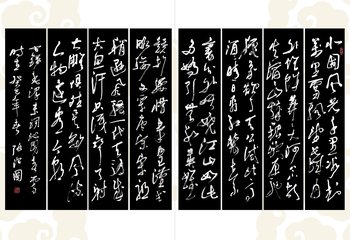 北国风光千里冰封
万里雪飘望长城内
外惟余莽莽大河上下
顿失滔滔山舞银蛇原驰蜡
象欲与天公试比高
须晴日看红装素
裹分外妖娆江山如此
多娇引无数英雄
竞折腰惜秦皇汉武
略输文采唐宗宋祖
稍逊风骚一代天骄成
吉思汗只识弯弓射
大雕俱往矣数风流
人物还看今朝